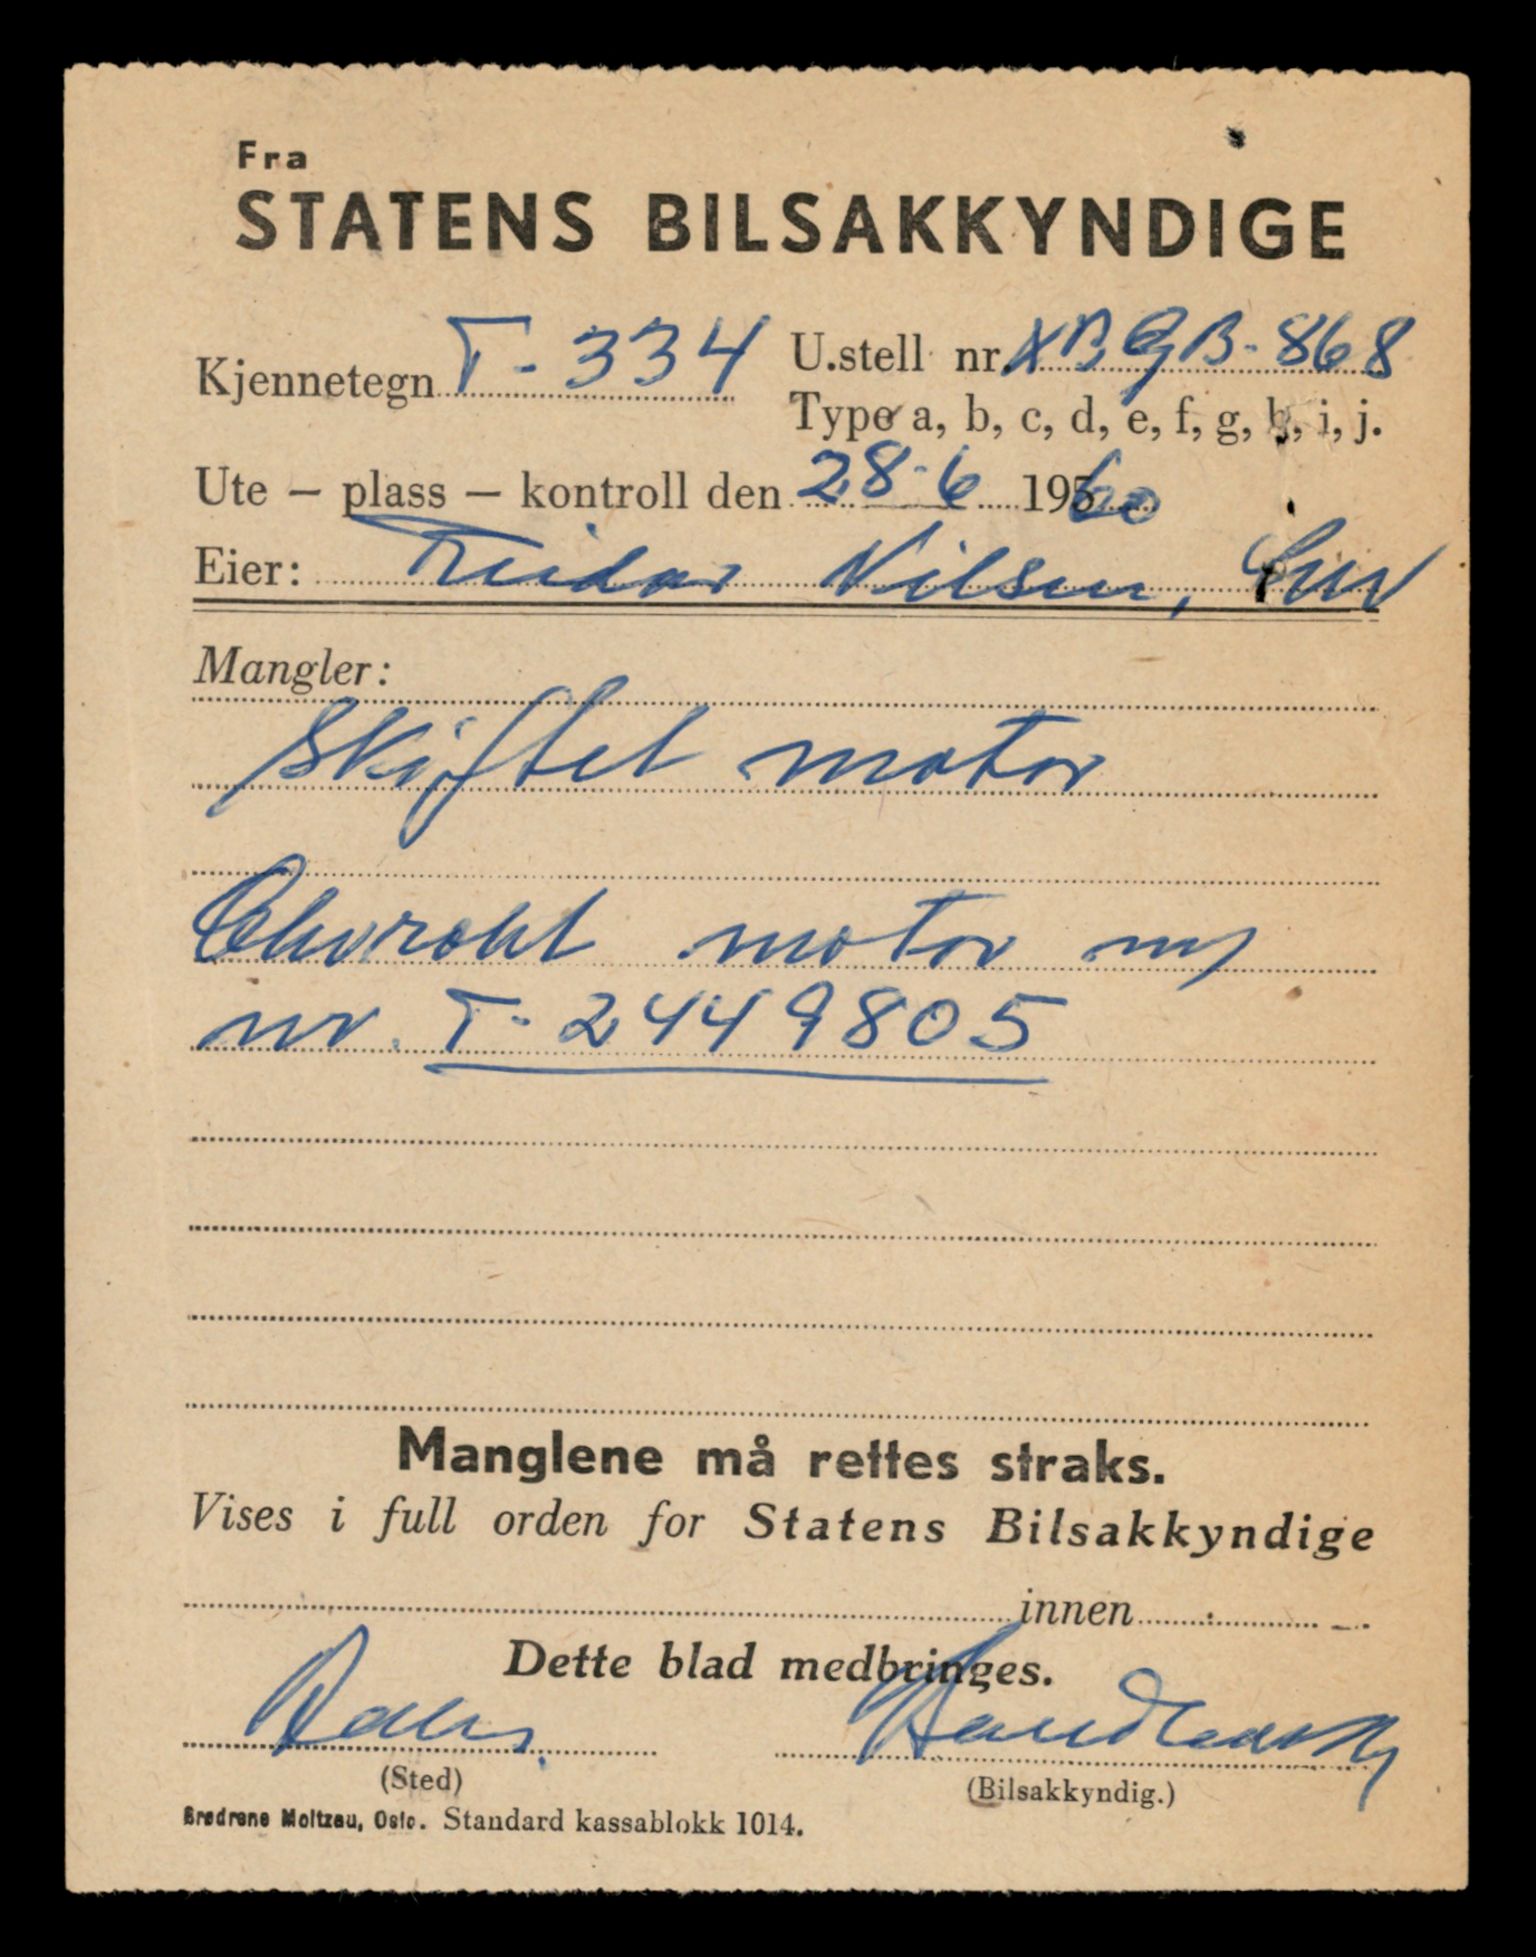 Fra
STATENS BILSAKKYNDIGE
Kjennetegn T-334 U.stell nr. XBGB-868
Type a, b, c, d, e, f, g, h, i, j.
Ute – plass – kontroll den 28-6 1960
Eier: Reidar Nilsen,
Mangler:
Skiftet motor
Chevrolet motor ny
nr. T-2449805
Manglene må rettes straks.
Vises i full orden for Statens Bilsakkyndige
innen
Dette blad medbringes.
(Sted)
(Bilsakkyndig.)
Brødrene Moltzau, Oslo. Standard kassablokk 1014.